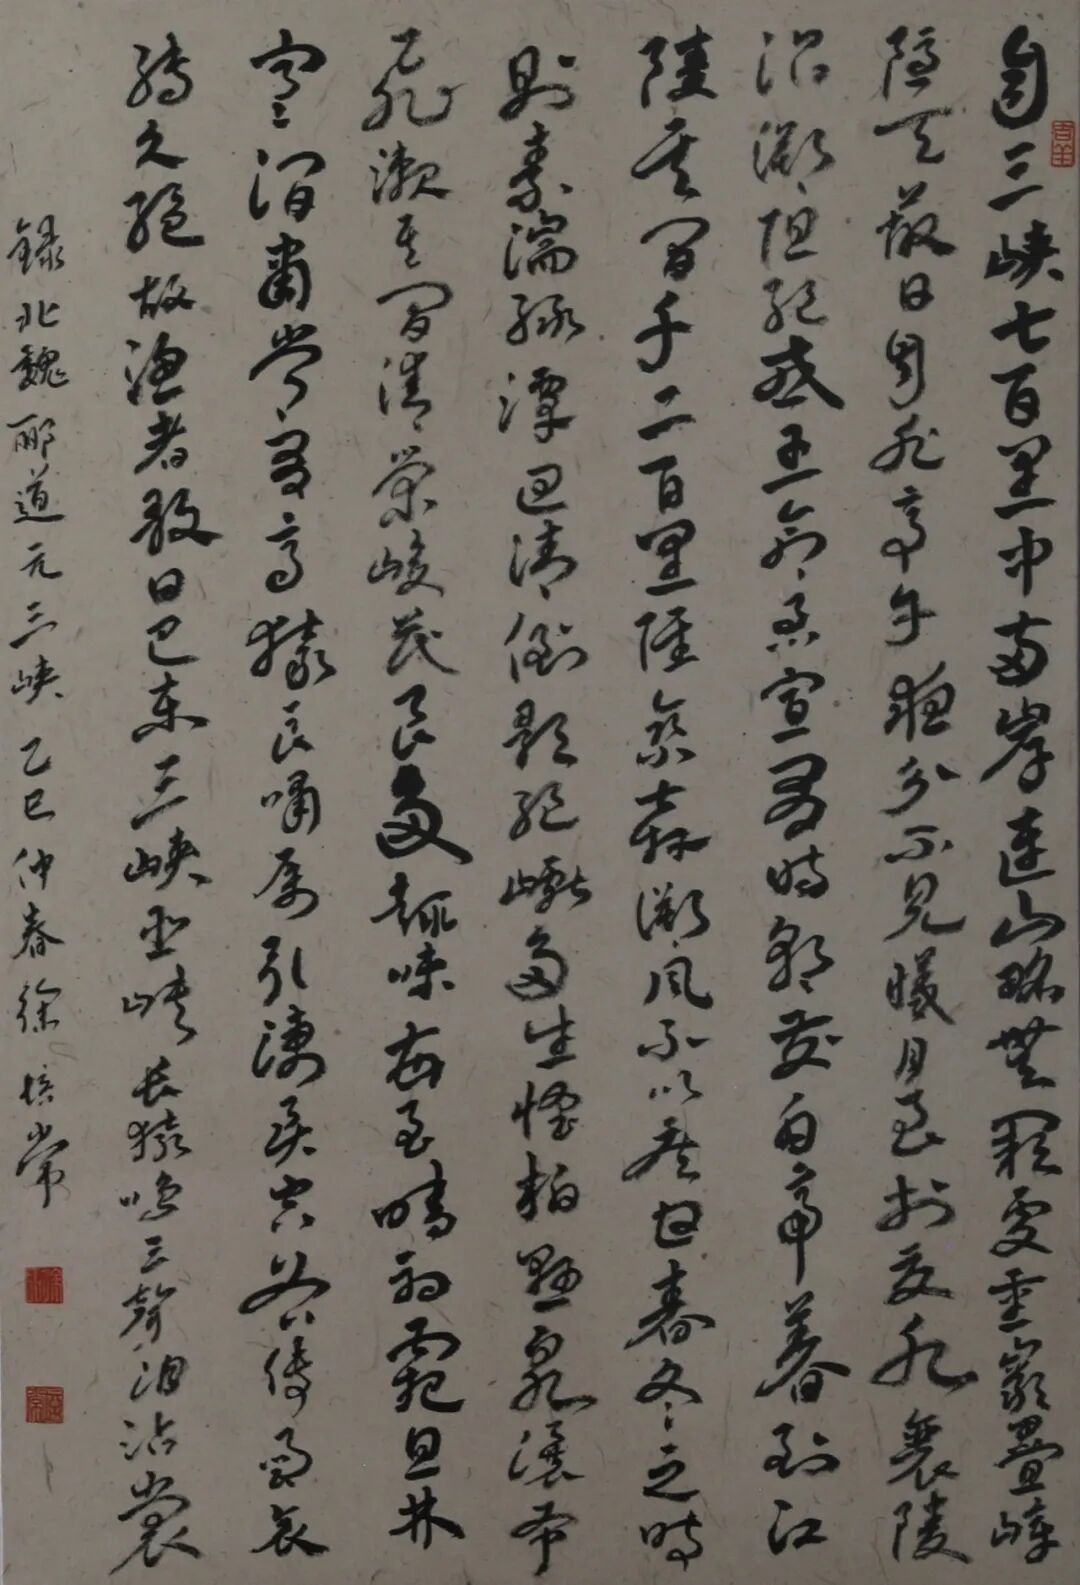 自三峡七百里中两岸连山略无阙处重岩叠嶂
隐天蔽日自非亭午夜分不见曦月至于夏水襄陵
沿溯阻绝或王命急宣有时朝发白帝暮到江
陵其间千二百里虽乘奔御风不以疾也春冬之时
则素湍绿潭回清倒影绝巘多生怪柏悬泉瀑布
飞漱其间清荣峻茂良多趣味每至晴初霜旦林
寒涧肃常有高猿长啸属引凄异空谷传响哀
转久绝故渔者歌曰巴东三峡巫峡长猿鸣三声泪沾裳
録北魏郦道元三峡乙巳仲春徐培常